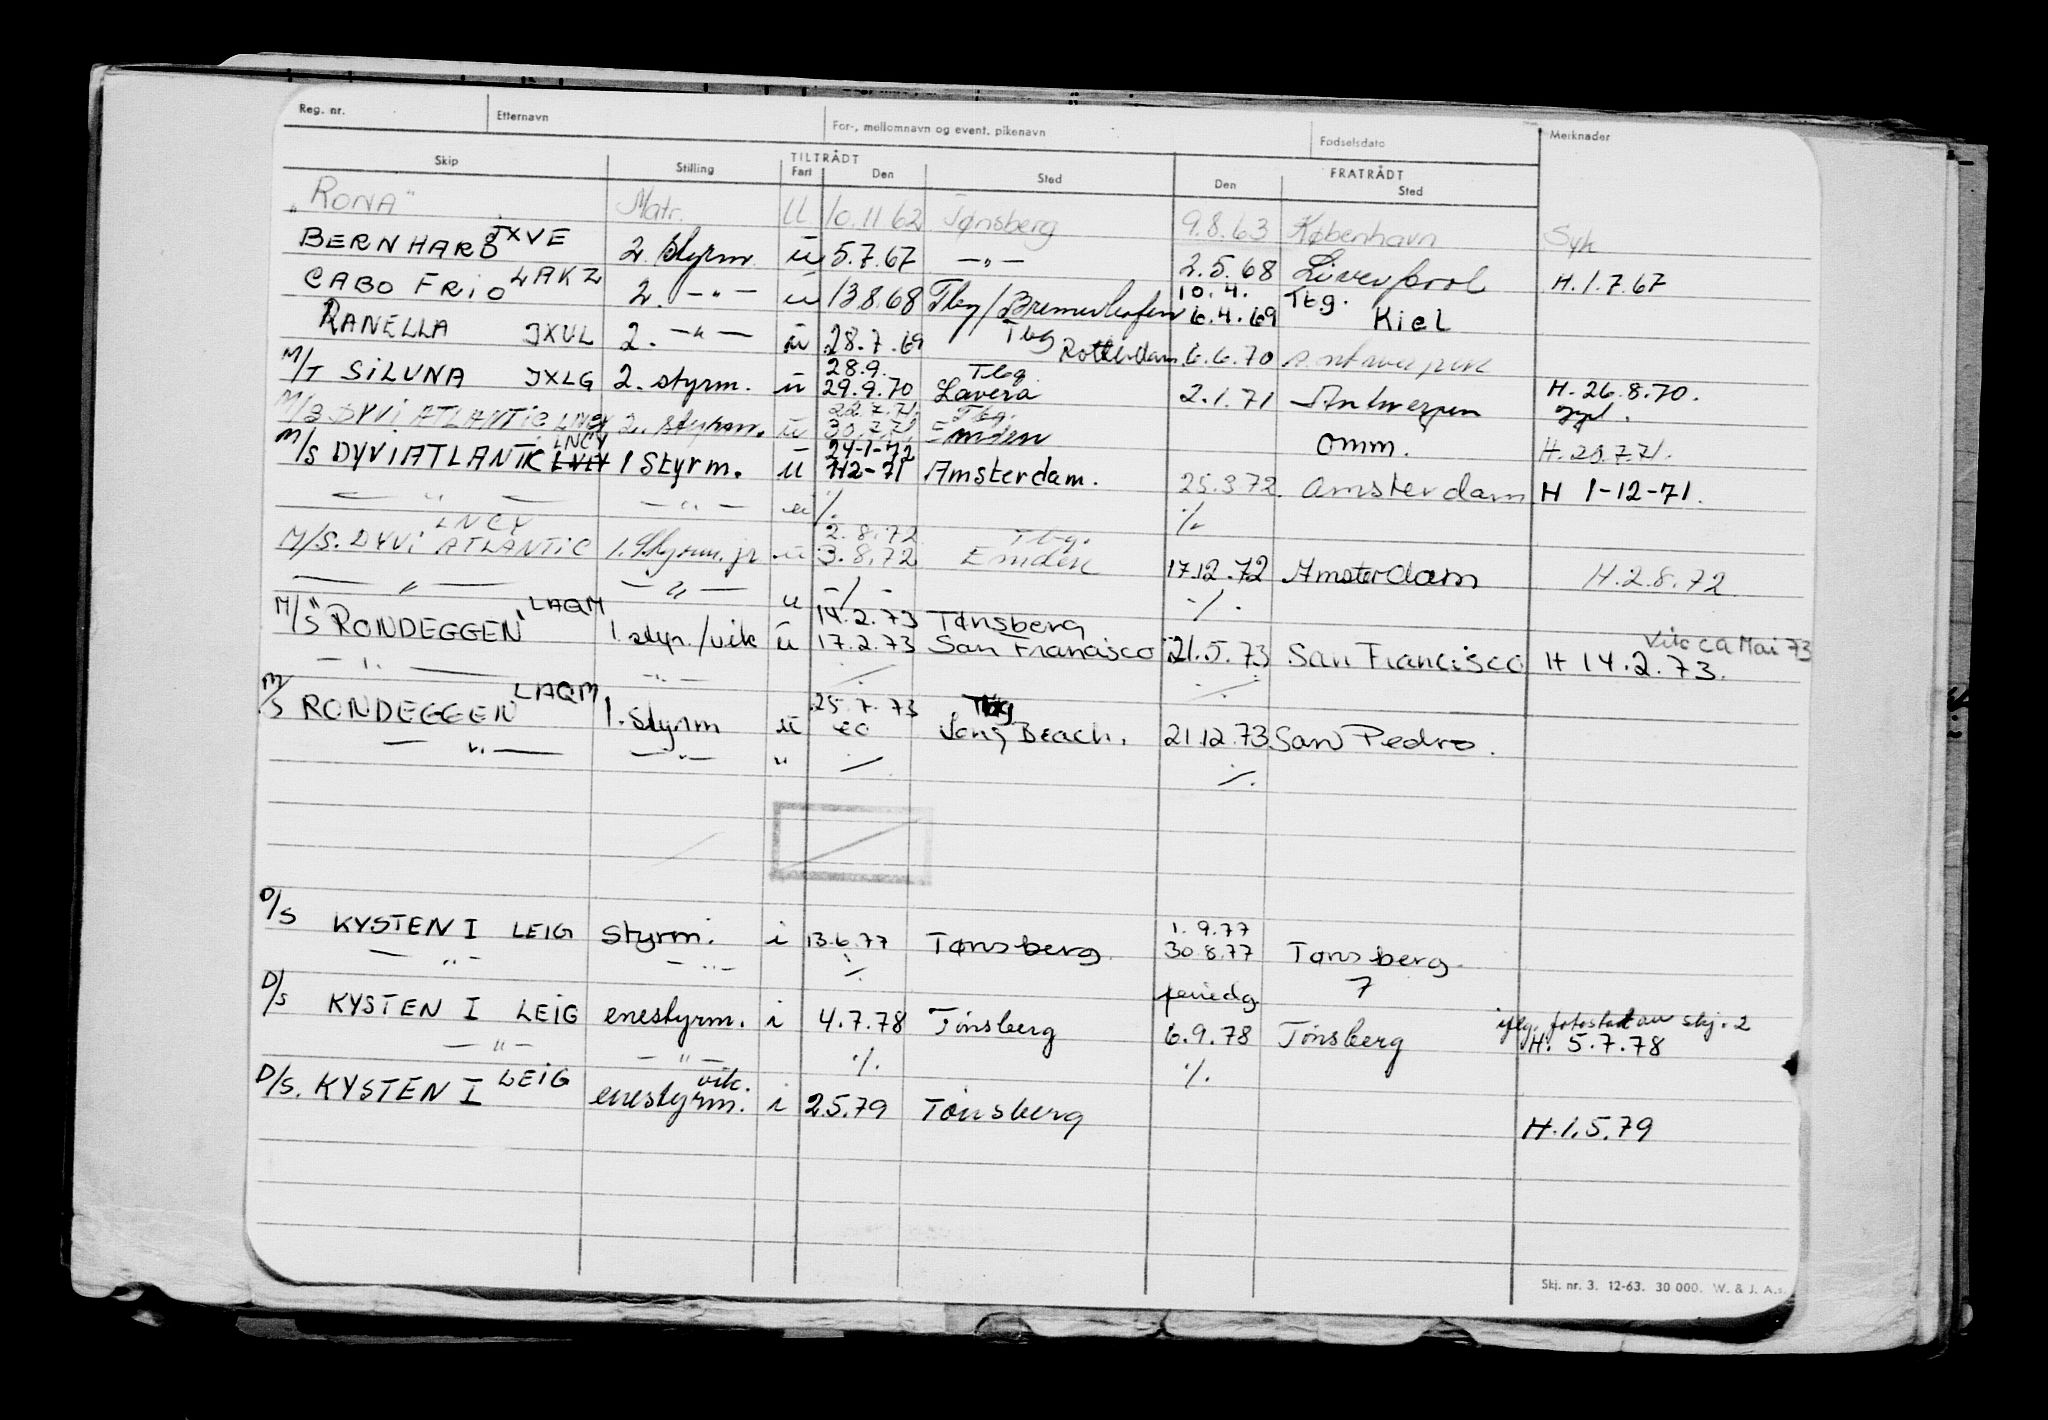 Reg. nr. Etternavn For-, mellomnavn og event. pikenavn Fødselsdato Merknader
TILTRÅDT FRATRÅDT
Skip Stilling Fart Den Sted Den Sted
"RONA" Matr. U 10.11 62 Tønsberg 9.8.63 København Syk
BERNHARD JXVE 2. styrm. u 5.7.67 —"— 2.5.68 Liverpool H.1.7.67
10.4. Tbg.
CABO FRIO LAKZ 2. —"— u 13.8.68 Tbg/Bremerhafen 6.4.69 Kiel
Tbg
RANELLA JXUL 2. —"— u 28.7.69 Rotterdam 6.6.70 Antwerpen
28.9. Tbg.
M/T SILUNA JXLG 2. styrm. u 29.9.70 Lavera 2.1.71 Antwerpen H.26.8.70.
22.7.71. Tbg.
M/S DYVI ATLANTIC LNCY 2. styrm. u 30.7.71 Emden omm. H.20.7.71.
LNCY 24-1-72
M/S DYVI ATLANTIC 1 Styrm. u 7-12-71 Amsterdam. 25.3.72. Amsterdam H 1-12-71.
—"— —"— u ./. ./.
LNCY 2.8.72 Tbg.
M/S. DYVI ATLANTIC 1. Styrm. jr u 3.8.72 Emden 17.12.72 Amsterdam H.2.8.72.
—"— —"— u -/- ./.
LAQM 14.2.73 Tønsberg Vik ca Mai 73
M/S "RONDEGGEN" 1. styr./vik u 17.2.73 San Francisco 21.5.73 San Francisco H 14.2.73.
—"— —"— ./. ./.
LAQM 25.7.73 Tbg
M/S RONDEGGEN 1. Styrm u Long Beach. 21.12.73 San Pedro.
—"— —"— " ./. ./.
1.9.77
D/S KYSTEN I LEIG styrm. i 13.6.77 Tønsberg. 30.8.77 Tønsberg.
—"— —"— ./. 7
feriedg.
D/S KYSTEN I LEIG enestyrm. i 4.7.78 Tønsberg 6.9.78 Tønsberg iflg. fotostat av skj. 2
H. 5.7.78
—"— —"— ./. ./.
LEIG vik.
D/S. KYSTEN I enestyrm. i 2.5.79 Tønsberg H.1.5.79
Skj. nr. 3. 12-63. 30 000. W. & J. A.s.